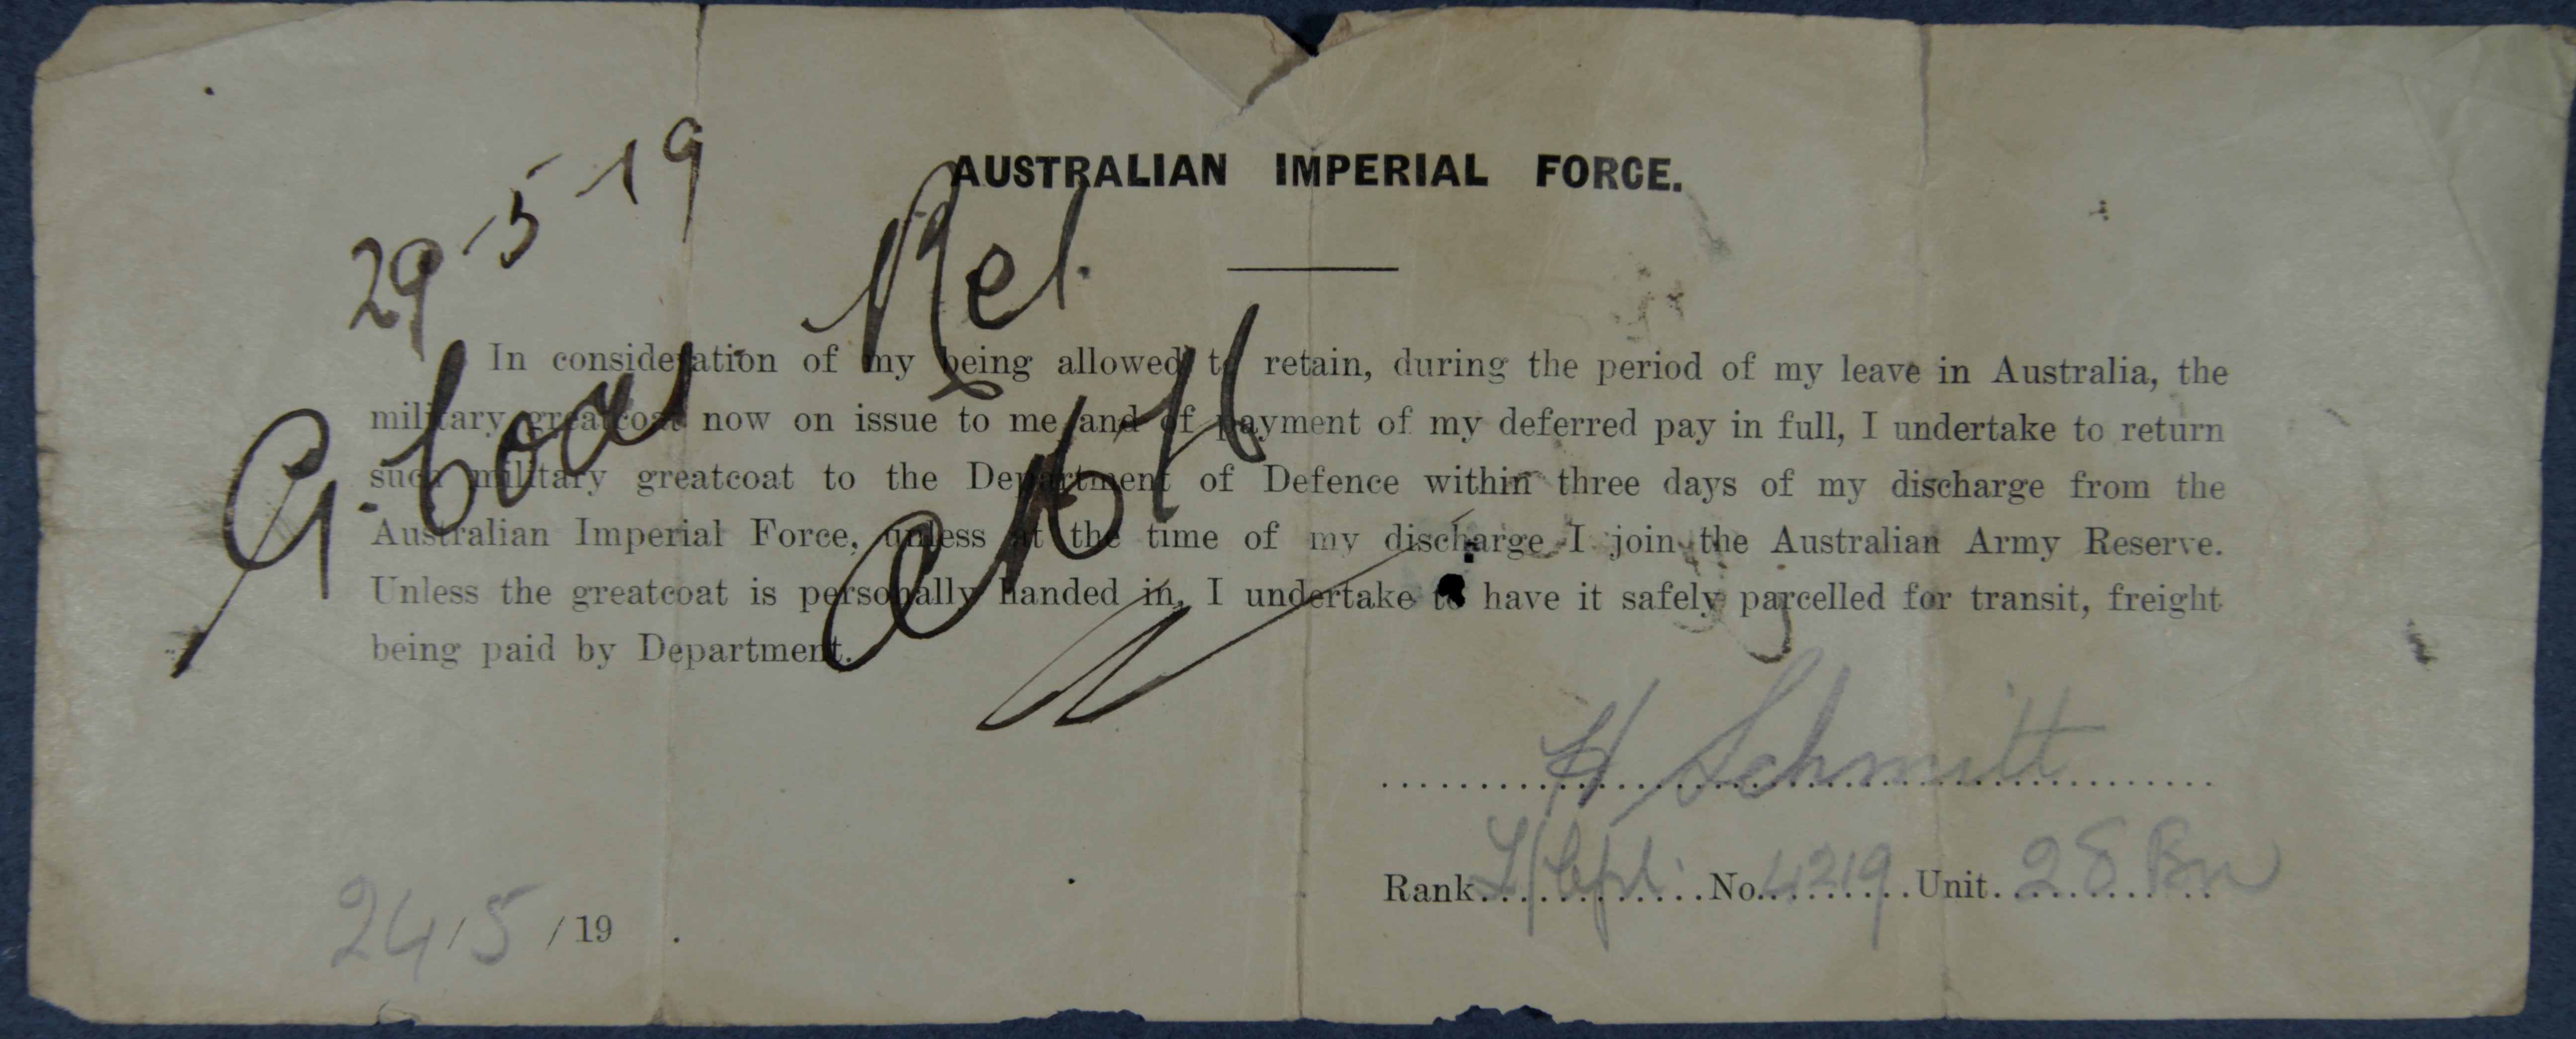 AUSTRALIAN IMPERIAL FORCE.
29-5-19
Ret.
G. Coat
In consideration of my being allowed to retain, during the period of my leave in Australia, the
military greatcoat now on issue to me, and of payment of my deferred pay in full, I undertake to return
such military greatcoat to the Department of Defence within three days of my discharge from the
Australian Imperial Force, unless at the time of my discharge I join the Australian Army Reserve.
Unless the greatcoat is personally handed in, I undertake to have it safely parcelled for transit, freight
being paid by Department.
H Schmitt
Rank L/Cpl. No. 4219 Unit. 28 Bn
24/5/19